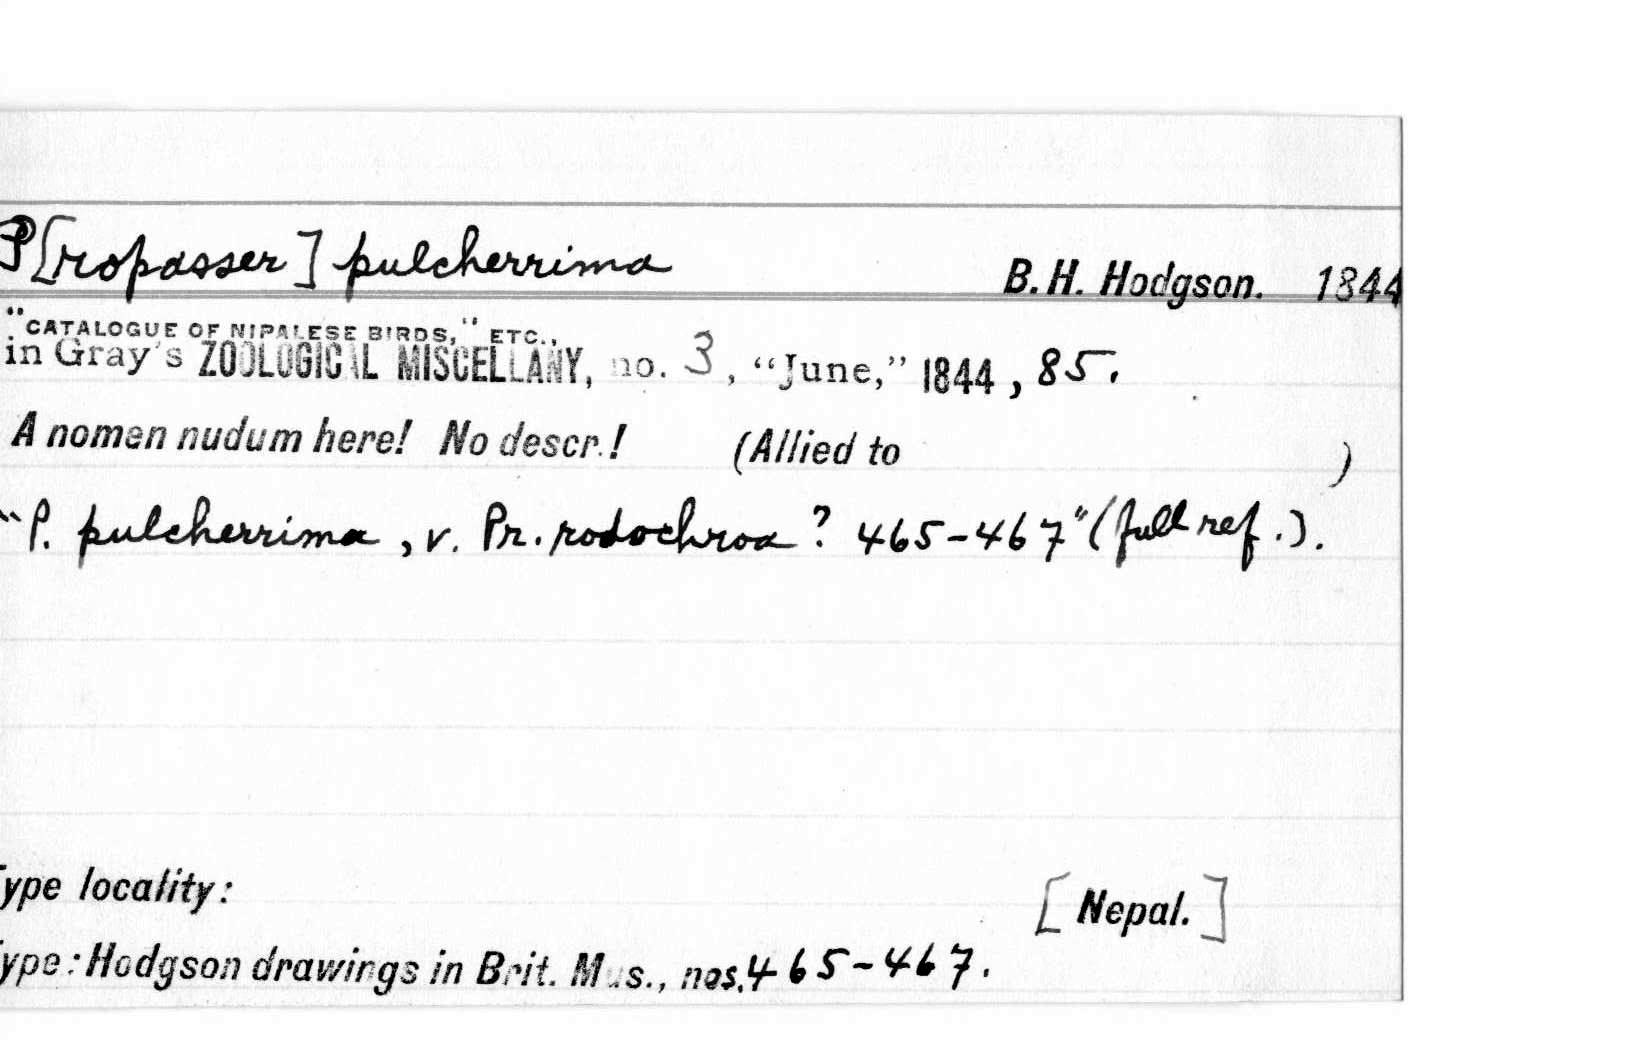 P[ropasser] pulcherrima B. H. Hodgson. 1844
"CATALOGUE OF NIPALESE BIRDS," ETC.,
in Gray's ZOOLOGICAL MISCELLANY, no. 3, "June," 1844, 85.
A nomen nudum here! No descr.! (Allied to )
"P. pulcherrima, v. Pr. rodochroa? 465-467" (full ref.).
ype locality: [Nepal.]
ype: Hodgson drawings in Brit. Mus., nos. 465-467.